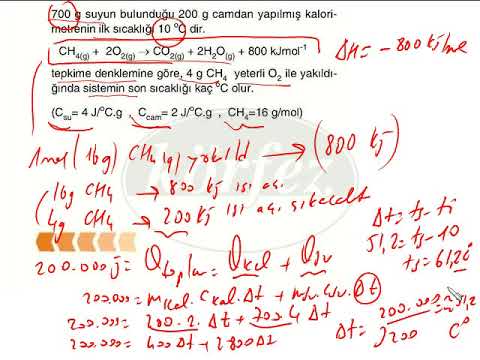 700 g suyun bulunduğu 200 g camdan yapılmış kalori-
metrenin ilk sıcaklığı 10 °C dir.
CH₄(g) + 2O₂(g) → CO₂(g) + 2H₂O(g) + 800 kJmol⁻¹
ΔH = -800 kj/mol
tepkime denklemine göre, 4 g CH₄ yeterli O₂ ile yakıldı-
ğında sistemin son sıcaklığı kaç °C olur.
(Csu= 4 J/°C.g , Ccam= 2 J/°C.g , CH₄=16 g/mol)
1mol (16g) CH₄(g) yakıldı → (800 kj)
körfez
16g CH₄ → 800 kj ısı aç.
4g CH₄ → 200 kj ısı açığa
200.000 j = Qtoplam = Qkal + Qsu
200.000 = mkal. Ckal. Δt + msu. Csu. Δt
200.000 = 200.2. Δt + 700.4 Δt
200.000 = 400 Δt + 2800 Δt
Δt = ts - ti
51,2 = ts - 10
ts = 61,2
Δt = 200.000 / 3200
C°